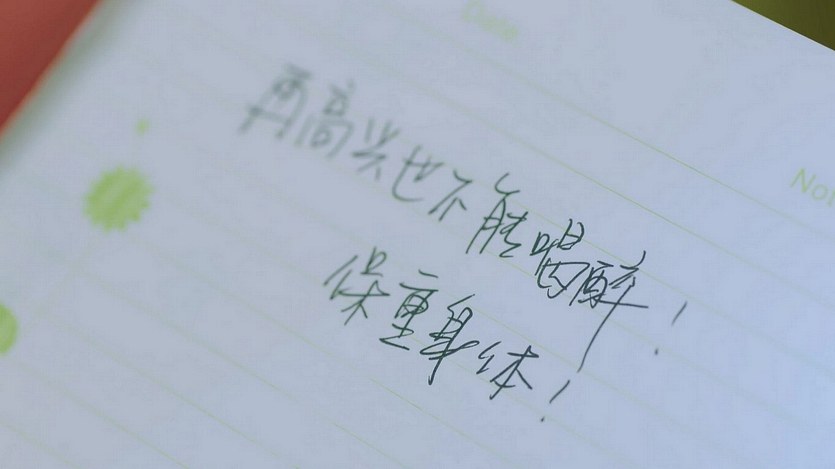 Date
再高兴也不能喝醉!
保重身体!